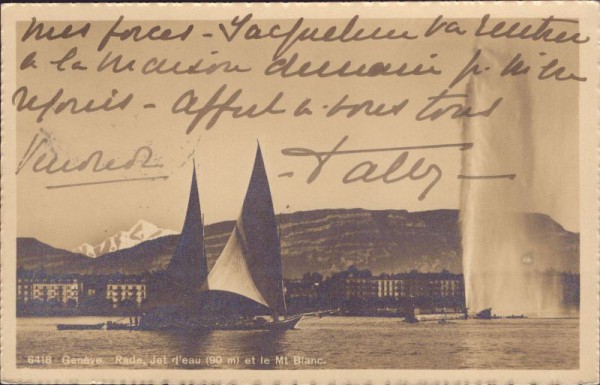 mes forces - Jacqueline va rentrer
à la maison demain p. midi
Affect. à vous tous
Vendredi
- Fally -
6418 Genève. Rade, Jet d'eau (90 m) et le Mt Blanc.